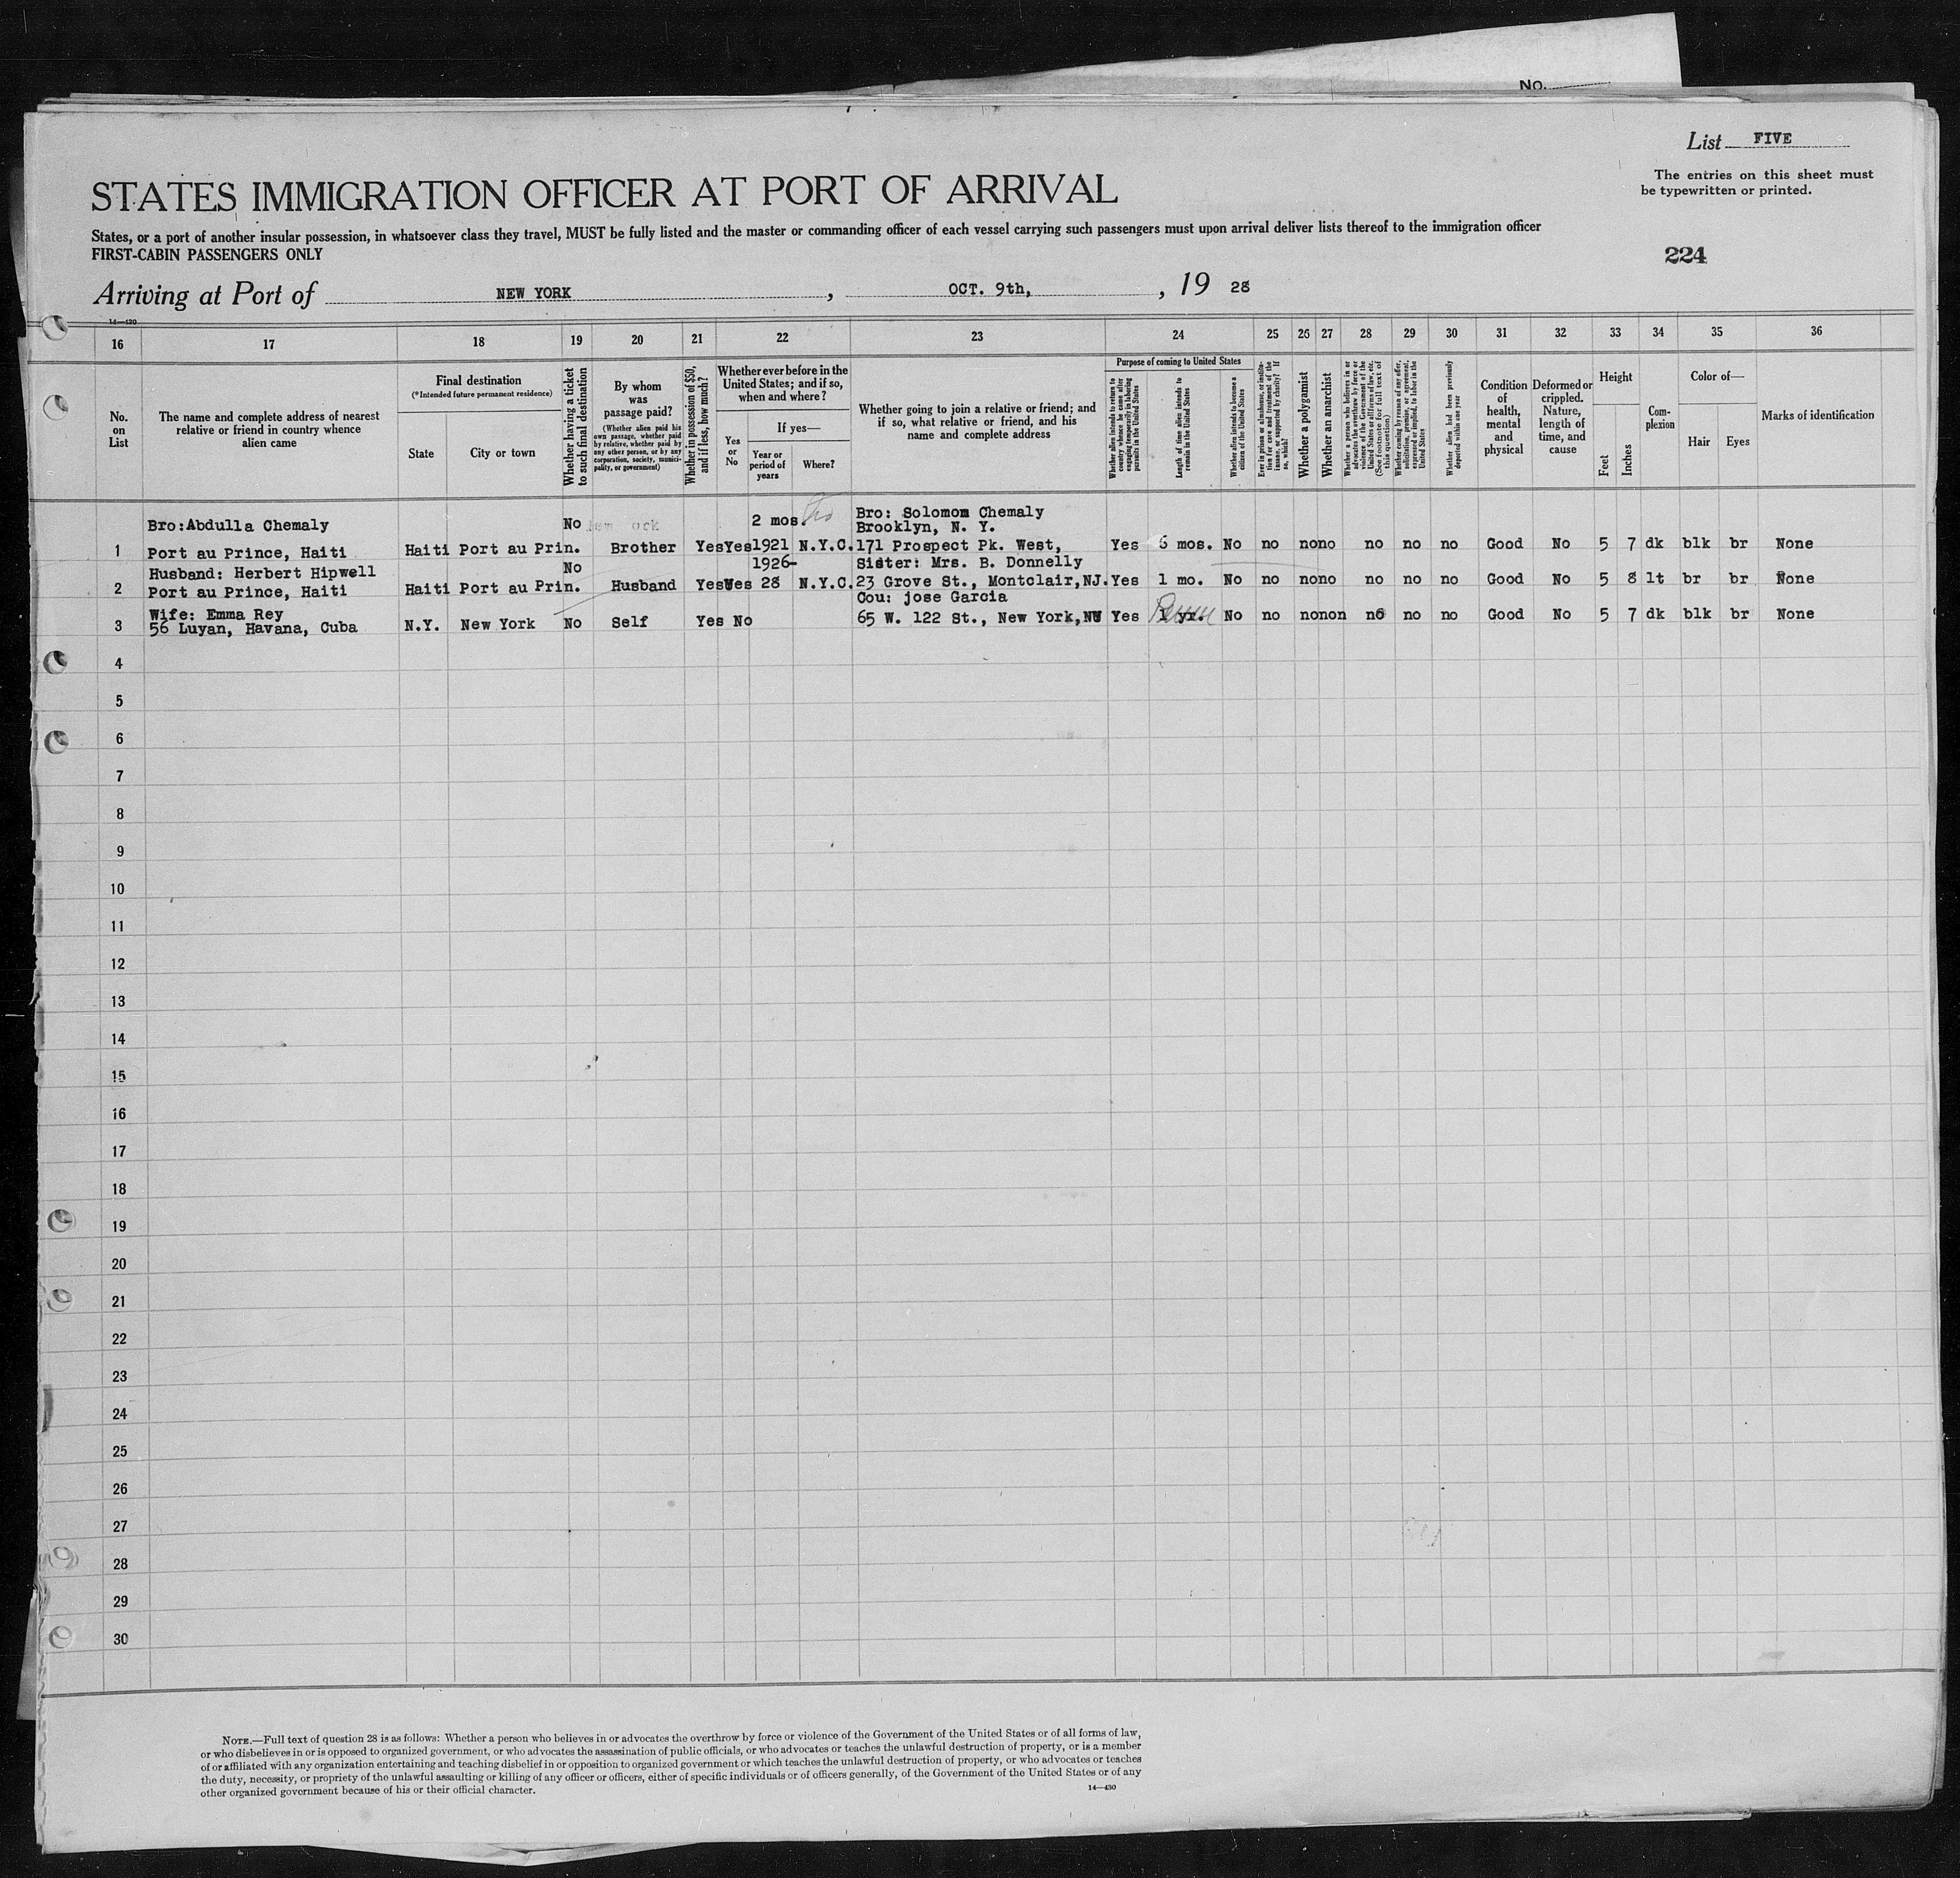 No.
List FIVE
The entries on this sheet must
be typewritten or printed.
STATES IMMIGRATION OFFICER AT PORT OF ARRIVAL
States, or a port of another insular possession, in whatsoever class they travel, MUST be fully listed and the master or commanding officer of each vessel carrying such passengers must upon arrival deliver lists thereof to the immigration officer
FIRST-CABIN PASSENGERS ONLY
224
Arriving at Port of NEW YORK, OCT. 9th, , 19 28
14—430
16 17 18 19 20 21 22 23 24 25 26 27 28 29 30 31 32 33 34 35 36
No.
on
List
The name and complete address of nearest
relative or friend in country whence
alien came
Final destination
(*Intended future permanent residence)
State
City or town
Whether having a ticket
to such final destination
By whom
was
passage paid?
(Whether alien paid his
own passage, whether paid
by relative, whether paid by
any other person, or by any
corporation, society, munici-
pality, or government)
Whether in possession of $50,
and if less, how much?
Whether ever before in the
United States; and if so,
when and where?
Yes
or
No
If yes—
Year or
period of
years
Where?
Whether going to join a relative or friend; and
if so, what relative or friend, and his
name and complete address
Purpose of coming to United States
Whether alien intends to return to
country whence he came after
engaging temporarily in laboring
pursuits in the United States
Length of time alien intends to
remain in the United States
Whether alien intends to become a
citizen of the United States
Ever in prison or almshouse, or institu-
tion for care and treatment of the
insane, or supported by charity? If
so, which?
Whether a polygamist
Whether an anarchist
Whether a person who believes in or
advocates the overthrow by force or
violence of the Government of the
United States or all forms of law, etc.
(See footnote for full text of
this question)
Whether coming by reason of any offer,
solicitation, promise, or agreement,
expressed or implied, to labor in the
United States
Whether alien had been previously
deported within one year
Condition
of
health,
mental
and
physical
Deformed or
crippled.
Nature,
length of
time, and
cause
Height
Feet
Inches
Com-
plexion
Color of—
Hair
Eyes
Marks of identification
Bro:Abdulla Chemaly No 2 mos. Bro: Solomon Chemaly
Brooklyn, N. Y.
1 Port au Prince, Haiti Haiti Port au Prin. Brother Yes Yes 1921 N.Y.C. 171 Prospect Pk. West, Yes 6 mos. No no no no no no no Good No 5 7 dk blk br None
Husband: Herbert Hipwell No 1926- Sister: Mrs. B. Donnelly
2 Port au Prince, Haiti Haiti Port au Prin. Husband Yes Yes 28 N.Y.C. 23 Grove St., Montclair,NJ. Yes 1 mo. No no no no no no no Good No 5 8 lt br br None
Wife: Emma Rey Cou: jose Garcia
3 56 Luyan, Havana, Cuba N.Y. New York No Self Yes No 65 W. 122 St., New York,NY Yes 1 yr. No no no non no no no Good No 5 7 dk blk br None
4
5
6
7
8
9
10
11
12
13
14
15
16
17
18
19
20
21
22
23
24
25
26
27
28
29
30
NOTE.—Full text of question 28 is as follows: Whether a person who believes in or advocates the overthrow by force or violence of the Government of the United States or of all forms of law,
or who disbelieves in or is opposed to organized government, or who advocates the assassination of public officials, or who advocates or teaches the unlawful destruction of property, or is a member
of or affiliated with any organization entertaining and teaching disbelief in or opposition to organized government or which teaches the unlawful destruction of property, or who advocates or teaches
the duty, necessity, or propriety of the unlawful assaulting or killing of any officer or officers, either of specific individuals or of officers generally, of the Government of the United States or of any
other organized government because of his or their official character.
14—430